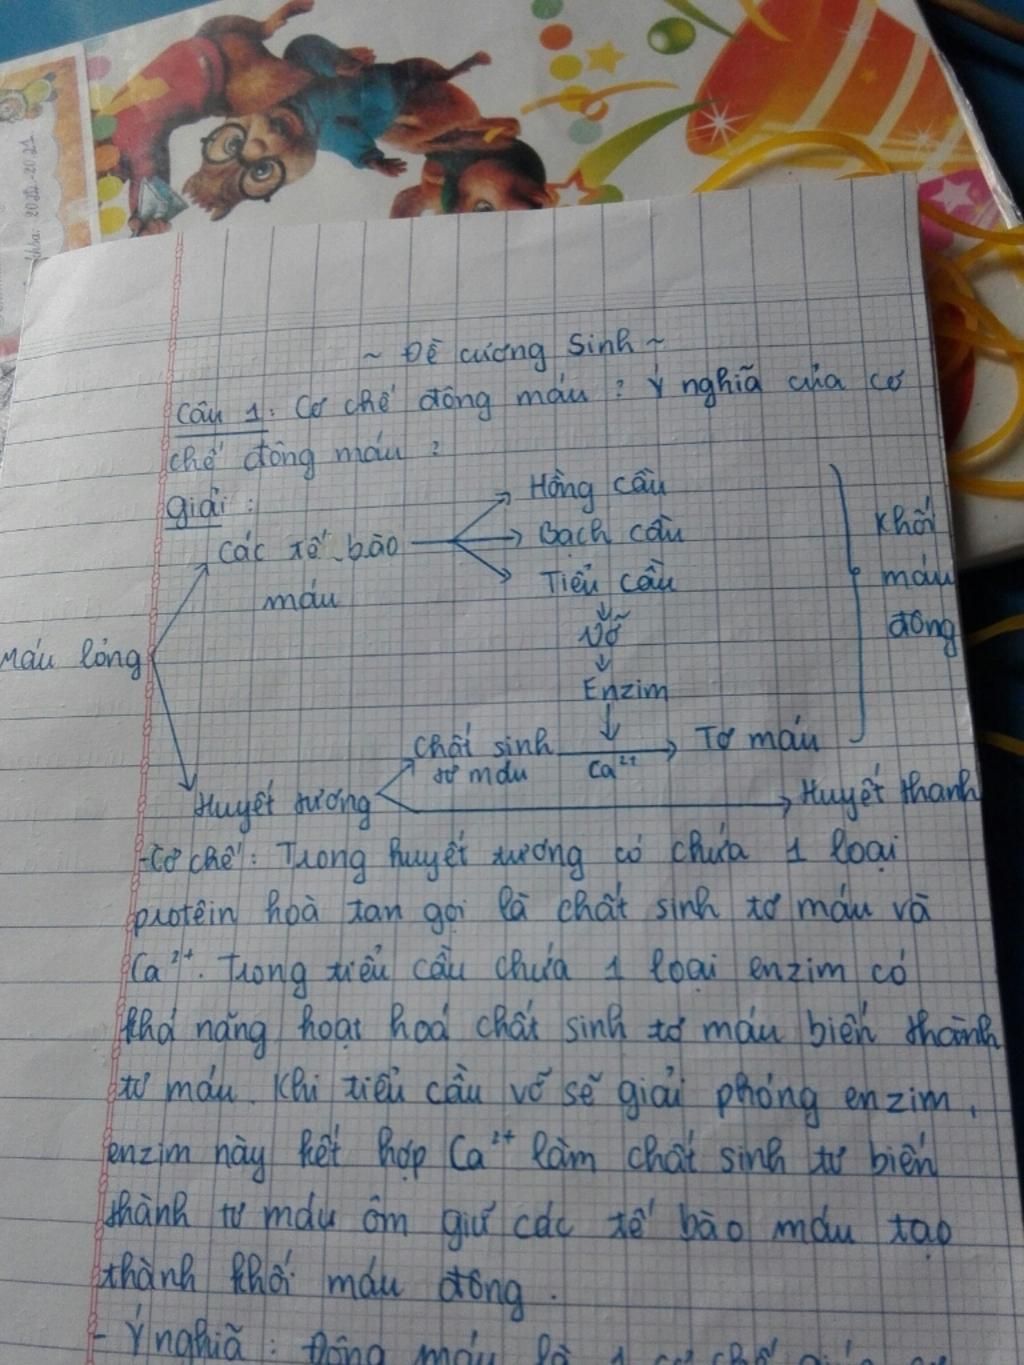 ~ Đề cương Sinh ~
Câu 1: Cơ chế đông máu ? Ý nghĩa của cơ
chế đông máu ?
giải :
Các tế bào
máu
Hồng cầu
Bạch cầu
Tiểu cầu
Vỡ
Enzim
Khối
máu
đông
Máu lỏng
Chất sinh
tơ máu
Ca²⁺
Tơ máu
Huyết tương
Huyết thanh
-Cơ chế : Trong huyết tương có chứa 1 loại
protêin hoà tan gọi là chất sinh tơ máu và
Ca²⁺. Trong tiểu cầu chứa 1 loại enzim có
khả năng hoạt hoá chất sinh tơ máu biến thành
tơ máu. Khi tiểu cầu vỡ sẽ giải phóng enzim,
enzim này kết hợp Ca²⁺ làm chất sinh tơ biến
thành tơ máu ôm giữ các tế bào máu tạo
thành khối máu đông.
- Ý nghĩa : Đông máu là 1 cơ chế